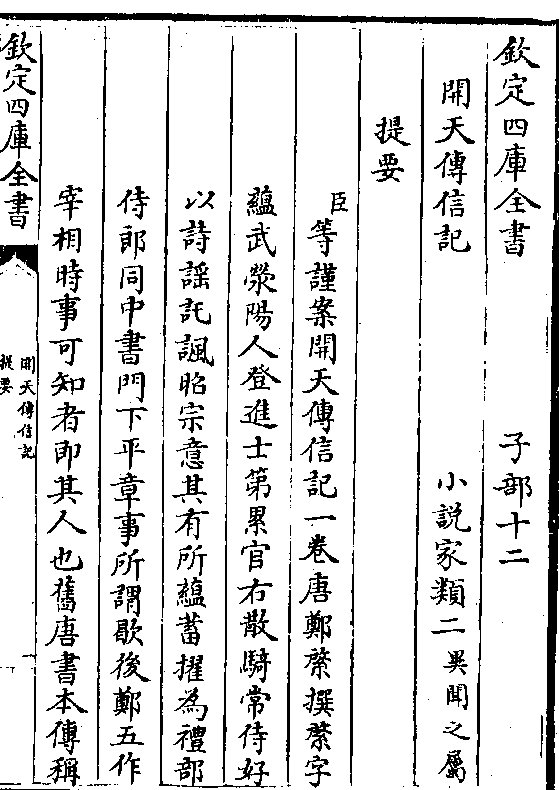 欽定四庫全書 子部十二
開天傳信記 小說家類二 異聞之屬
提要
臣等謹案開天傳信記一卷唐鄭綮撰綮字
蘊武滎陽人登進士第累官右散騎常侍好
以詩謡託諷昭宗意其有所蘊蓄擢為禮部
侍郎同中書門下平章事所謂歇後鄭五作
宰相時事可知者即其人也舊唐書本傳稱
欽定四庫全書
開天傳信記
提要